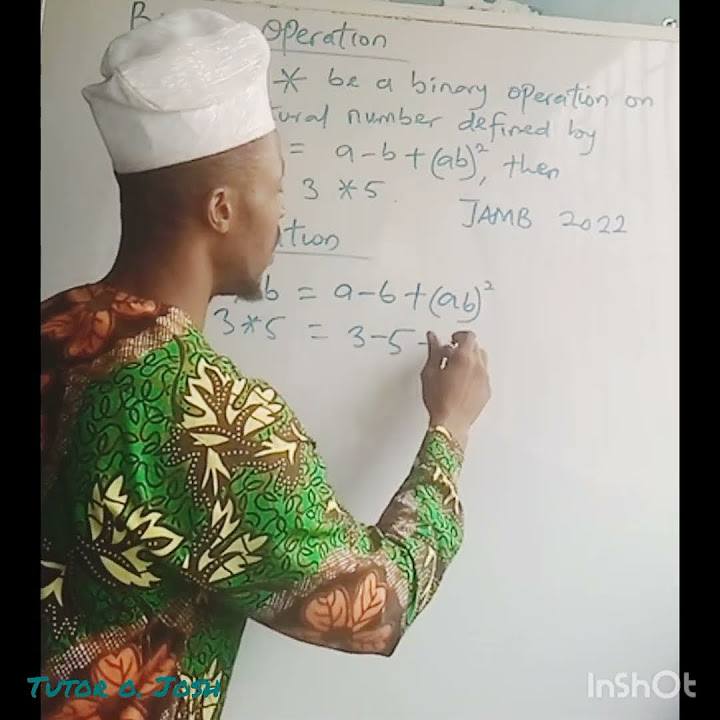 Operation
* be a binary operation on
number defined by
= a-b+(ab)², then
3 * 5.
JAMB 2022
b = a-b+(ab)²
3*5 = 3-5
TUTOR O. JOSH
InShOt